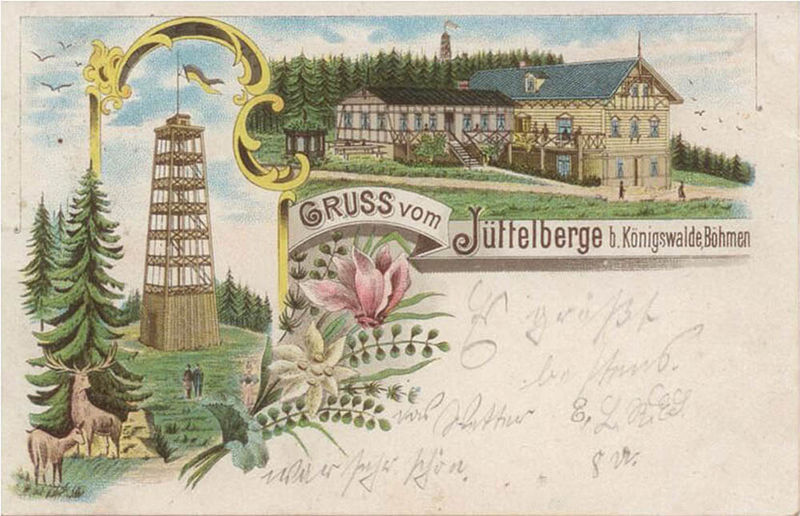 GRUSS vom
Jüttelberge b. Königswalde, Böhmen
Es grüßt
bestens.
das Wetter
war sehr schön.